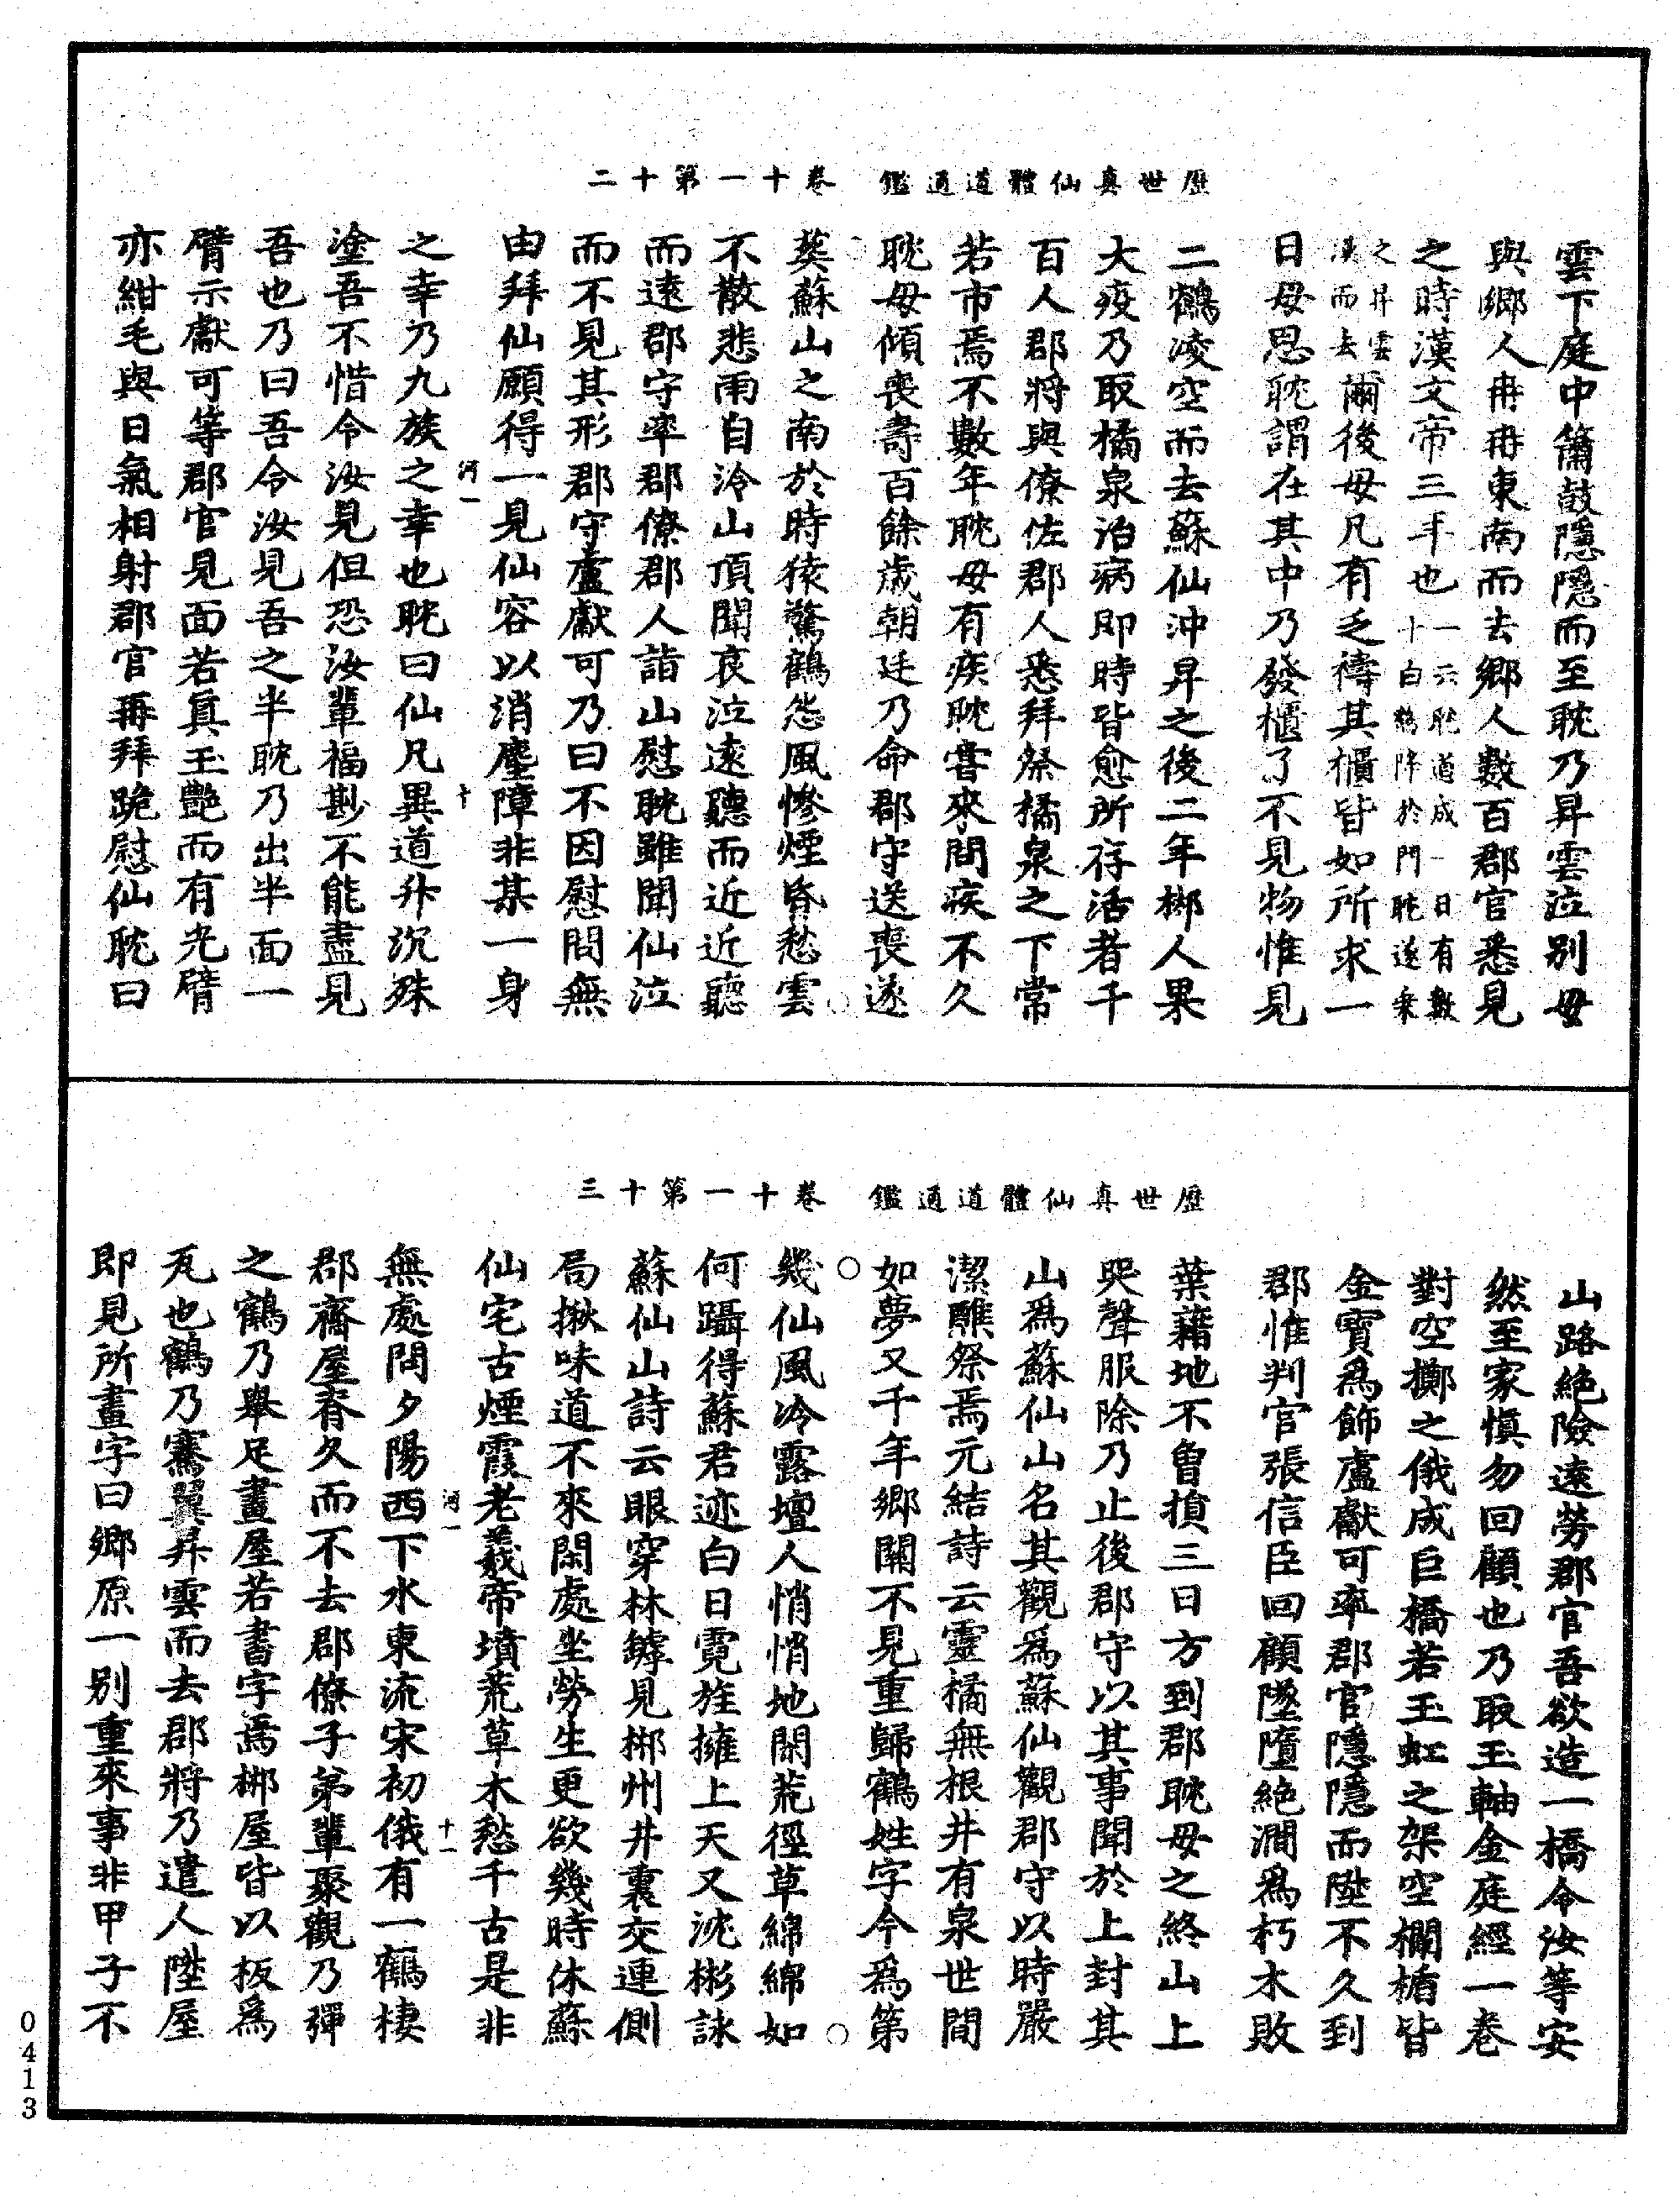 歷世真仙體道通鑑　卷十一第十二
雲下庭中簫鼓隱隱而至耽乃昇雲泣別母
與鄉人冉冉東南而去鄉人數百郡官悉見
之時漢文帝三年也一云耽道成一日有數十白鶴降於門耽遂乘
之昇雲漢而去爾後母凡有乏禱其櫃皆如所求一
日母思耽謂在其中乃發櫃了不見物惟見
二鶴凌空而去蘇仙沖昇之後二年郴人果
大疫乃取橘泉治病即時皆愈所存活者千
百人郡將與僚佐郡人悉拜祭橘泉之下常
若市焉不數年耽母有疾耽嘗來問疾不久
耽母傾喪壽百餘歲朝廷乃命郡守送喪遂
葬蘇山之南於時猿驚鶴怨風慘煙昏愁雲
不散悲雨自泠山頂聞哀泣遠聽而近近聽
而遠郡守率郡僚郡人詣山慰耽雖聞仙泣
而不見其形郡守盧獻可乃曰不因慰問無
由拜仙願得一見仙容以消塵障非某一身
之幸乃九族之幸也耽曰仙凡異道升沉殊
河一
十
塗吾不惜令汝見但恐汝輩福尠不能盡見
吾也乃曰吾令汝見吾之半耽乃出半面一
臂示獻可等郡官見面若真玉艷而有光臂
亦紺毛與日氣相射郡官再拜跪慰仙耽曰
歷世真仙體道通鑑　卷十一第十三
山路絕險遠勞郡官吾欲造一橋令汝等安
然至家慎勿回顧也乃取玉軸金庭經一卷
對空擲之俄成巨橋若玉虹之架空欄楯皆
金寶為飾盧獻可率郡官隱隱而陞不久到
郡惟判官張信臣回顧墜墮絕澗為朽木敗
葉藉地不曾損三日方到郡耽母之終山上
哭聲服除乃止後郡守以其事聞於上封其
山為蘇仙山名其觀為蘇仙觀郡守以時嚴
潔醮祭焉元結詩云靈橘無根井有泉世間
如夢又千年鄉關不見重歸鶴姓字今為第
幾仙風泠露壇人悄悄地閑荒徑草綿綿如
何躡得蘇君迹白日霓旌擁上天又沈彬詠
蘇仙山詩云眼穿林罅見郴州井裏交連側
局揪味道不來閑處坐勞生更欲幾時休蘇
仙宅古煙霞老義帝墳荒草木愁千古是非
無處問夕陽西下水東流宋初俄有一鶴棲
河一
十一
郡齋屋脊久而不去郡僚子弟輩聚觀乃彈
之鶴乃舉足畫屋若書字焉郴屋皆以板為
瓦也鶴乃騫翼昇雲而去郡將乃遣人陞屋
即見所畫字曰鄉原一別重來事非甲子不
0413